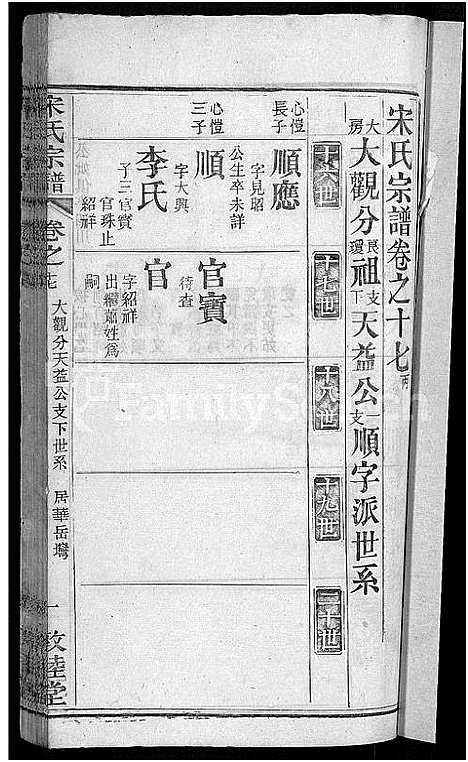 宋氏宗譜卷之十七
大房大觀分長環祖支下天益公一支順字派世系
十六世
十七世
十八世
十九世
二十世
心愷長子
順應
字見昭
公生卒未詳
心愷三子
順
字大興
李氏
子三官寶
官珠止
紹祥
官寶
待查
官
字紹祥
出繼蕭姓爲
嗣
宋氏宗譜
卷之十七
大觀分天益公支下世系
居華岳灣
一
敦睦堂
FamilySearch